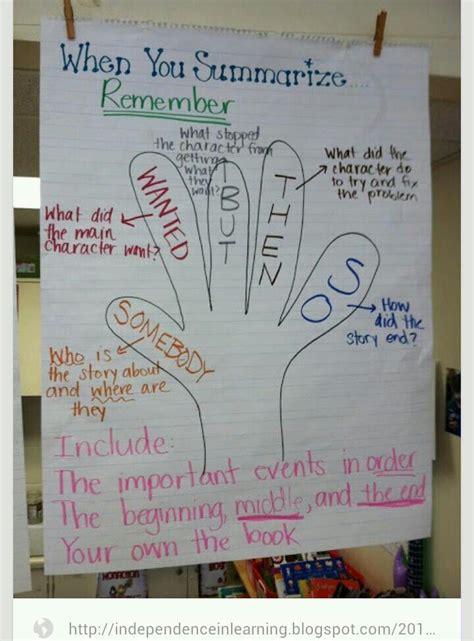 When You Summarize....
Remember
What stopped
the character from
getting
what
they
want?
What did the
character do
to try and fix
the problem
WANTED
BUT
THEN
What did
the main
character want?
SO
How
did the
story end?
SOMEBODY
Who is
the story about
and where are
they
Include:
The important events in order
The beginning, middle, and the end
Your own the book
http://independenceinlearning.blogspot.com/201...